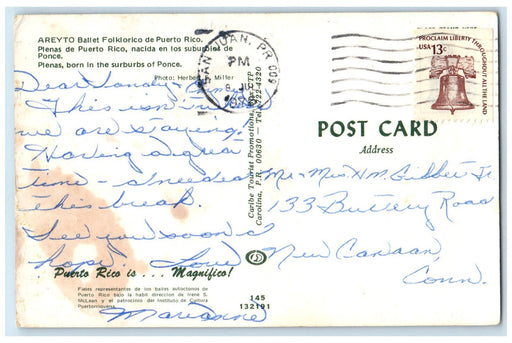 AREYTO Ballet Folklórico de Puerto Rico.
Plenas de Puerto Rico, nacida en los suburbios de
Ponce.
Plenas, born in the surburbs of Ponce.
Photo: Herbert Miller
Dear Sandy &
This isn't
we are staying.
Having a great
time - I needed
this break.
See you soon I
hope. Love
Marianne
Puerto Rico is . . . Magnífico!
Fieles representantes de los bailes autóctonos de
Puerto Rico bajo la hábil dirección de Irene S.
McLean y el patrocinios del Instituto de Cultura
Puertorriqueña.
Caribe Tourist Promotions,
Carolina, P.R. 00630 - Tel. 722-4320
145
132191
SAN JUAN, PR 009
PM
PROCLAIM LIBERTY THROUGHOUT ALL THE LAND
USA 13c
POST CARD
Address
Mr & Mrs. H.M. Gibbet Jr.
133 Buttery Road
New Canaan,
Conn.